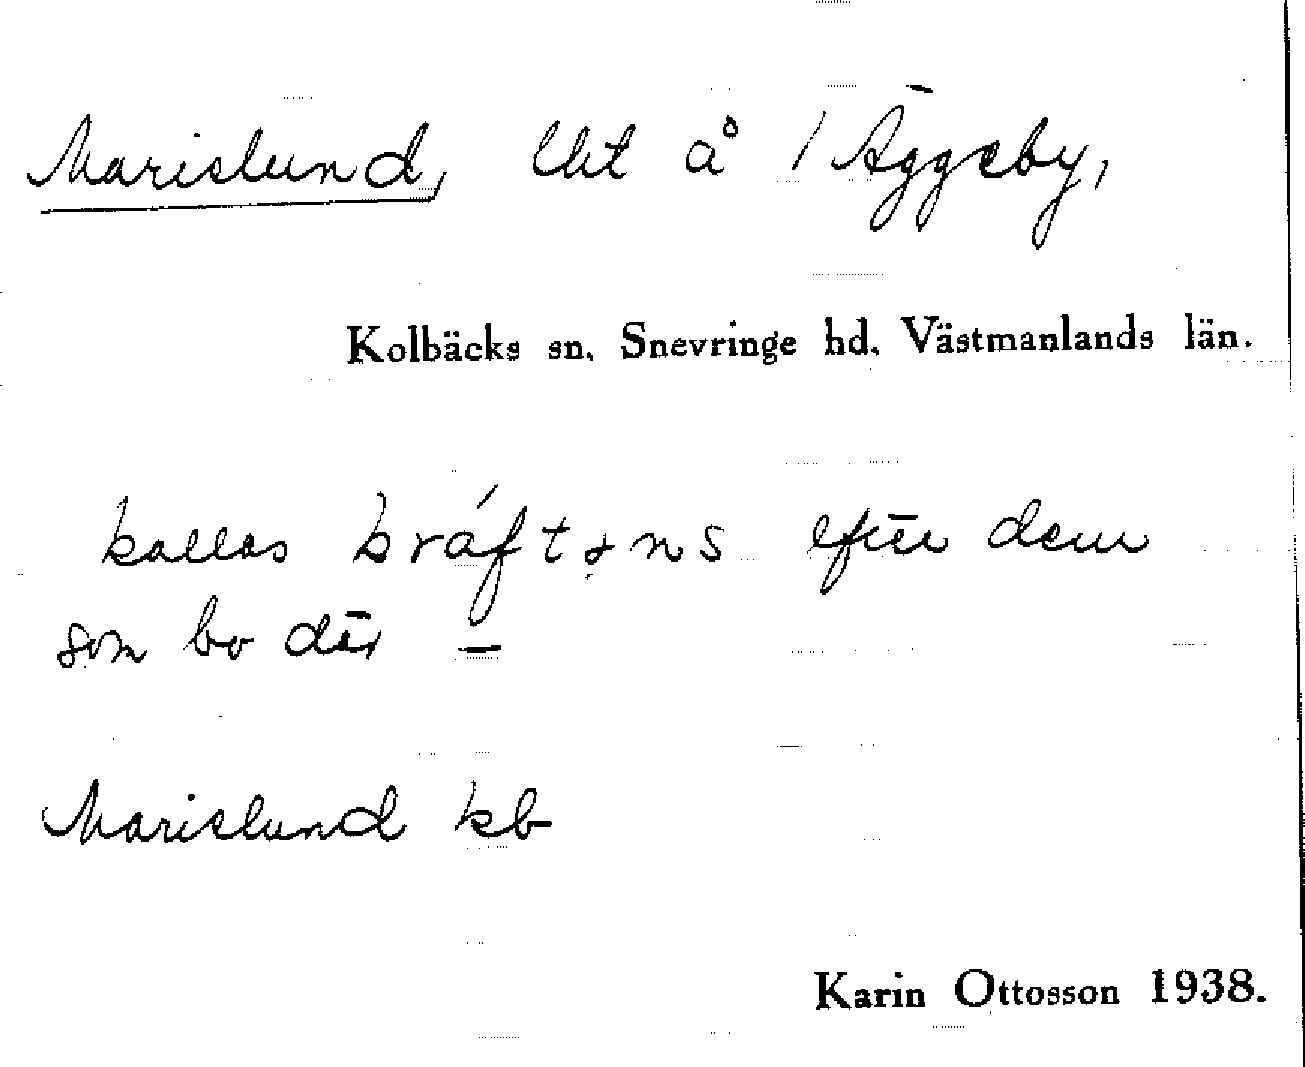 Marislund, lht å / Äggeby,
Kolbäcks sn. Snevringe hd. Västmanlands län.
kallas kráftans efter dem
som bo där –
Marislund kb
Karin Ottosson 1938.